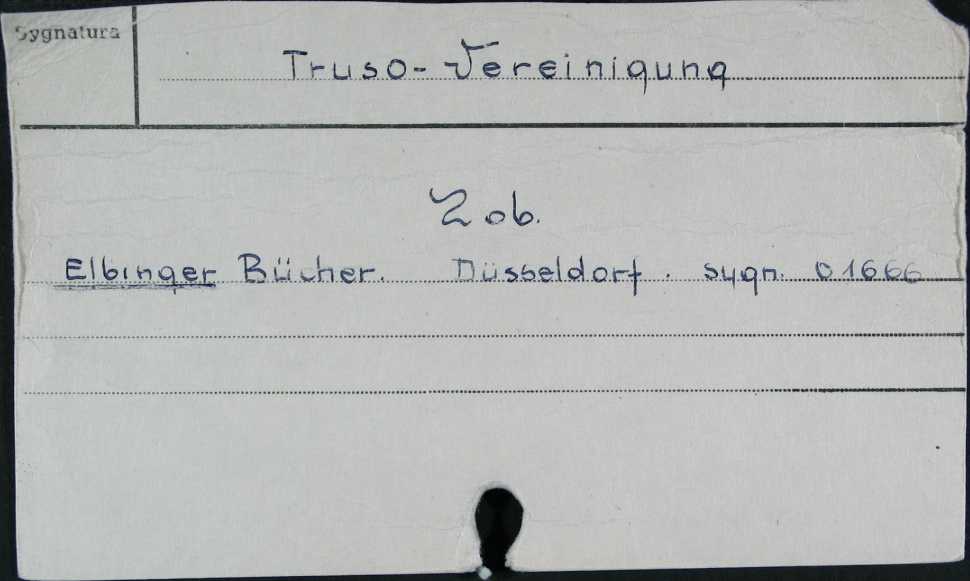 Sygnatura
Truso-Vereinigung
Zob.
Elbinger Bücher. Düsseldorf. sygn. 01666